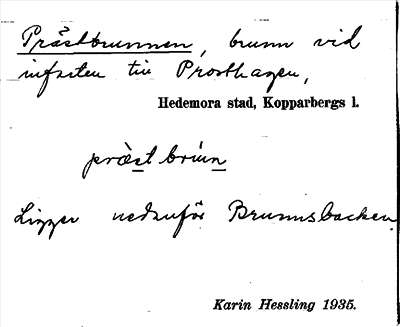 Prästbrunnen, brunn vid
infarten till Prosthagen,
Hedemora stad, Kopparbergs l.
prȁstbrún
Ligger nedanför Brunnsbacken.
Karin Hessling 1935.